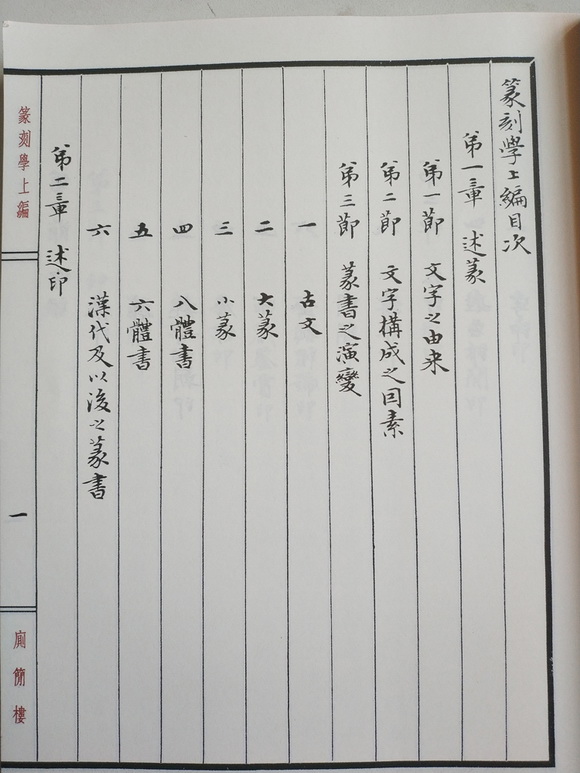 篆刻學上編目次
第一章 述篆
第一節 文字之由来
第二節 文字構成之因素
第三節 篆書之演變
一 古文
二 大篆
三 小篆
四 八體書
五 六體書
六 漢代及以後之篆書
第二章 述印
篆刻學上編
一
簡樓